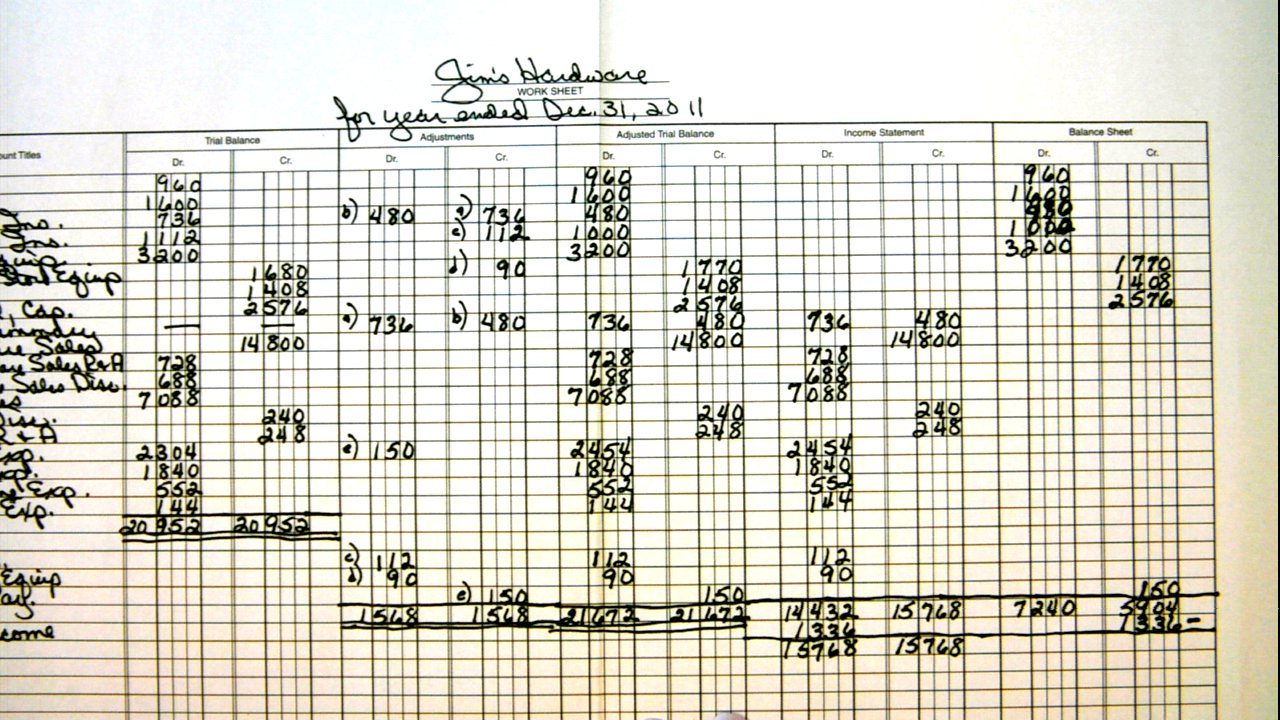 Jim's Hardware
WORK SHEET
for year ended Dec. 31, 2011
Trial Balance Adjustments Adjusted Trial Balance Income Statement Balance Sheet
unt Titles Dr. Cr. Dr. Cr. Dr. Cr. Dr. Cr. Dr. Cr.
960 960 960
1600 1600 1600
Inv. 736 b) 480 a) 736 480 480
Ins. 1112 c) 112 1000 1000
Equip. 3200 3200 3200
Store Equip 1680 d) 90 1770 1770
1408 1408 1408
, Cap. 2576 2576 2576
ummary — — a) 736 b) 480 736 480 736 480
are Sales 14800 14800 14800
are Sales R+A 728 728 728
e Sales Disc. 688 688 688
es 7088 7088 7088
Disc. 240 240 240
R + A 248 248 248
Exp. 2304 e) 150 2454 2454
Exp. 1840 1840 1840
Exp. 552 552 552
Exp. 144 144 144
20952 20952
c) 112 112 112
Equip d) 90 90 90
ay. e) 150 150 150
1568 1568 21672 21672 14432 15768 7240 5904
come 1336 1336 –
15768 15768